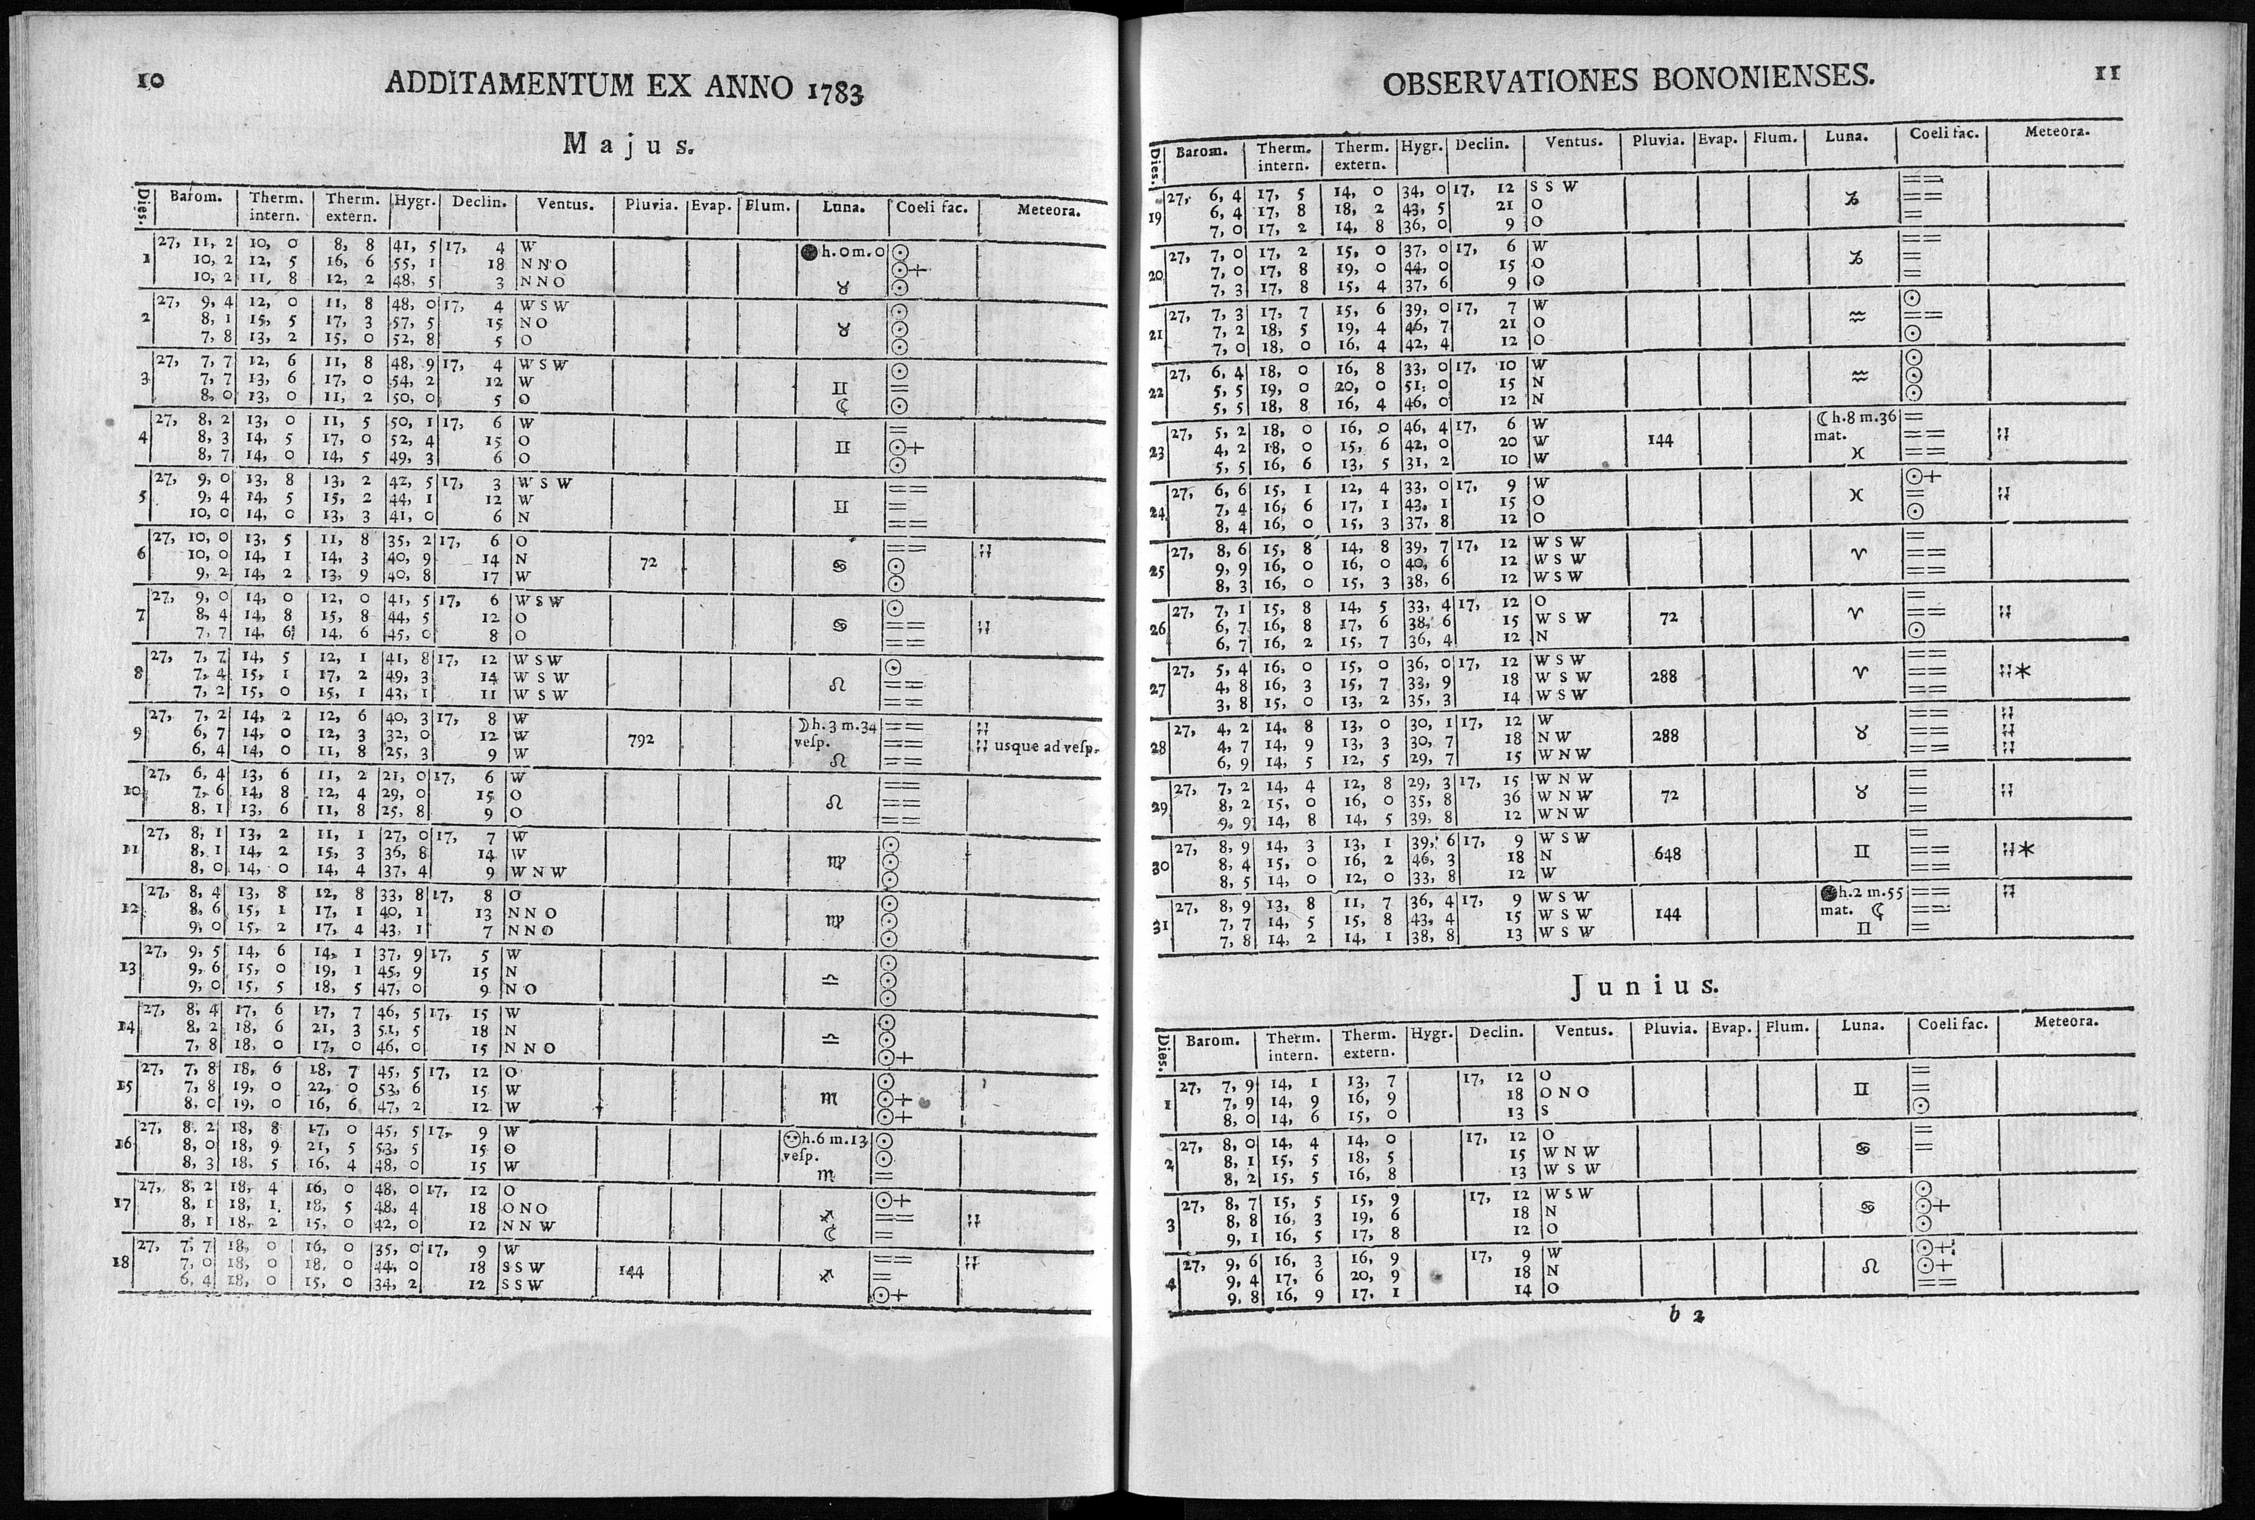 10 ADDITAMENTUM EX ANNO 1783
Majus.
Dies. Barom. Therm. intern. Therm. extern. Hygr. Declin. Ventus. Pluvia. Evap. Flum. Luna. Coeli fac. Meteora.
1 27, 11, 2 10, 0 8, 8 41, 5 17, 4 W h. 0 m. 0 ☉
10, 2 12, 5 16, 6 55, 1 18 NNO ☉+
10, 2 11, 8 12, 2 48, 5 3 NNO ♉ ☉
2 27, 9, 4 12, 0 11, 8 48, 0 17, 4 WSW ☉
8, 1 15, 5 17, 3 57, 5 15 NO ♉ ☉
7, 8 13, 2 15, 0 52, 8 5 O ☉
3 27, 7, 7 12, 6 11, 8 48, 9 17, 4 WSW ☉
7, 7 13, 6 17, 0 54, 2 12 W ♊ =
8, 0 13, 0 11, 2 50, 0 5 O ☾ ☉
4 27, 8, 2 13, 0 11, 5 50, 1 17, 6 W =
8, 3 14, 5 17, 0 52, 4 15 O ♊ ☉+
8, 7 14, 0 14, 5 49, 3 6 O ☉
5 27, 9, 0 13, 8 13, 2 42, 5 17, 3 WSW ==
9, 4 14, 5 15, 2 44, 1 12 W ♊ =
10, 0 14, 0 13, 3 41, 0 6 N ==
6 27, 10, 0 13, 5 11, 8 35, 2 17, 6 O == ¦¦
10, 0 14, 1 14, 3 40, 9 14 N 72 ♋ ☉
9, 2 14, 2 13, 9 40, 8 17 W ☉
7 27, 9, 0 14, 0 12, 0 41, 5 17, 6 WSW ☉
8, 4 14, 8 15, 8 44, 5 12 O ♋ == ¦¦
7, 7 14, 6 14, 6 45, 0 8 O ==
8 27, 7, 7 14, 5 12, 1 41, 8 17, 12 WSW ☉
7, 4 15, 1 17, 2 49, 3 14 WSW ♌ ==
7, 2 15, 0 15, 1 43, 1 11 WSW ==
9 27, 7, 2 14, 2 12, 6 40, 3 17, 8 W ☽h. 3 m. 34 == ¦¦
6, 7 14, 0 12, 3 32, 0 12 W 792 vesp. == ¦¦ usque ad vesp.
6, 4 14, 0 11, 8 25, 3 9 W ♌ ==
10 27, 6, 4 13, 6 11, 2 21, 0 17, 6 W ==
7, 6 14, 8 12, 4 29, 0 15 O ♌ ==
8, 1 13, 6 11, 8 25, 8 9 O ==
11 27, 8, 1 13, 2 11, 1 27, 0 17, 7 W ☉
8, 1 14, 2 15, 3 36, 8 14 W ♍ ☉
8, 0 14, 0 14, 4 37, 4 9 WNW ☉
12 27, 8, 4 13, 8 12, 8 33, 8 17, 8 O ☉
8, 6 15, 1 17, 1 40, 1 13 NNO ♍ ☉
9, 0 15, 2 17, 4 43, 1 7 NNO ☉
13 27, 9, 5 14, 6 14, 1 37, 9 17, 5 W ☉
9, 6 15, 0 19, 1 45, 9 15 N ♎ ☉
9, 0 15, 5 18, 5 47, 0 9 NO ☉
14 27, 8, 4 17, 6 17, 7 46, 5 17, 15 W ☉
8, 2 18, 6 21, 3 51, 5 18 N ♎ ☉
7, 8 18, 0 17, 0 46, 0 15 NNO ☉+
15 27, 7, 8 18, 6 18, 7 45, 5 17, 12 O ☉
7, 8 19, 0 22, 0 53, 6 15 W ♏ ☉+
8, 0 19, 0 16, 6 47, 2 12 W ☉+
16 27, 8, 2 18, 8 17, 0 45, 5 17, 9 W h. 6 m. 13 ☉
8, 0 18, 9 21, 5 53, 5 15 O vesp. ☉
8, 3 18, 5 16, 4 48, 0 15 W ♏ =
17 27, 8, 2 18, 4 16, 0 48, 0 17, 12 O ☉+
8, 1 18, 1 18, 5 48, 4 18 ONO ♐ ==
8, 1 18, 2 15, 0 42, 0 12 NNW ☾ = ¦¦
18 27, 7, 7 18, 0 16, 0 35, 0 17, 9 W == ¦¦
7, 0 18, 0 18, 0 44, 0 18 SSW 144 ♐ =
6, 4 18, 0 15, 0 34, 2 12 SSW ☉+
OBSERVATIONES BONONIENSES. 11
Dies. Barom. Therm. intern. Therm. extern. Hygr. Declin. Ventus. Pluvia. Evap. Flum. Luna. Coeli fac. Meteora.
19 27, 6, 4 17, 5 14, 0 34, 0 17, 12 SSW ==
6, 4 17, 8 18, 2 43, 5 21 O ♑ ==
7, 0 17, 2 14, 8 36, 0 9 O =
20 27, 7, 0 17, 2 15, 0 37, 0 17, 6 W ==
7, 0 17, 8 19, 0 44, 0 15 O ♑ =
7, 3 17, 8 15, 4 37, 6 9 O =
21 27, 7, 3 17, 7 15, 6 39, 0 17, 7 W ☉
7, 2 18, 5 19, 4 46, 7 21 O ♒ ==
7, 0 18, 0 16, 4 42, 4 12 O ☉
22 27, 6, 4 18, 0 16, 8 33, 0 17, 10 W ☉
5, 5 19, 0 20, 0 51, 0 15 N ♒ ☉
5, 5 18, 8 16, 4 46, 0 12 N ☉
23 27, 5, 2 18, 0 16, 0 46, 4 17, 6 W ☾h. 8 m. 36 =
4, 2 18, 0 15, 6 42, 0 20 W 144 mat. == ¦¦
5, 5 16, 6 13, 5 31, 2 10 W ♓ ==
24 27, 6, 6 15, 1 12, 4 33, 0 17, 9 W ☉+
7, 4 16, 6 17, 1 43, 1 15 O ♓ = ¦¦
8, 4 16, 0 15, 3 37, 8 12 O ☉
25 27, 8, 6 15, 8 14, 8 39, 7 17, 12 WSW =
9, 9 16, 0 16, 0 40, 6 12 WSW ♈ ==
8, 3 16, 0 15, 3 38, 6 12 WSW ==
26 27, 7, 1 15, 8 14, 5 33, 4 17, 12 O =
6, 7 16, 8 17, 6 38, 6 15 WSW 72 ♈ == ¦¦
6, 7 16, 2 15, 7 36, 4 12 N ☉
27 27, 5, 4 16, 0 15, 0 36, 0 17, 12 WSW ==
4, 8 16, 3 15, 7 33, 9 18 WSW 288 ♈ == ¦¦*
3, 8 15, 0 13, 2 35, 3 14 WSW ==
28 27, 4, 2 14, 8 13, 0 30, 1 17, 12 W == ¦¦
4, 7 14, 9 13, 3 30, 7 18 NW 288 ♉ == ¦¦
6, 9 14, 5 12, 5 29, 7 15 WNW == ¦¦
29 27, 7, 2 14, 4 12, 8 29, 3 17, 15 WNW =
8, 2 15, 0 16, 0 35, 8 36 WNW 72 ♉ = ¦¦
9, 9 14, 8 14, 5 39, 8 12 WNW =
30 27, 8, 9 14, 3 13, 1 39, 6 17, 9 WSW =
8, 4 15, 0 16, 2 46, 3 18 N 648 ♊ == ¦¦*
8, 5 14, 0 12, 0 33, 8 12 W ==
31 27, 8, 9 13, 8 11, 7 36, 4 17, 9 WSW h. 2 m. 55 == ¦¦
7, 7 14, 5 15, 8 43, 4 15 WSW 144 mat. ☾ ==
7, 8 14, 2 14, 1 38, 8 13 WSW ♊ =
Junius.
Dies. Barom. Therm. intern. Therm. extern. Hygr. Declin. Ventus. Pluvia. Evap. Flum. Luna. Coeli fac. Meteora.
1 27, 7, 9 14, 1 13, 7 17, 12 O =
7, 9 14, 9 16, 9 18 ONO ♊ =
8, 0 14, 6 15, 0 13 S ☉
2 27, 8, 0 14, 4 14, 0 17, 12 O =
8, 1 15, 5 18, 5 15 WNW ♋ =
8, 2 15, 5 16, 8 13 WSW
3 27, 8, 7 15, 5 15, 9 17, 12 WSW ☉
8, 8 16, 3 19, 6 18 N ♋ ☉+
9, 1 16, 5 17, 8 12 O ☉
4 27, 9, 6 16, 3 16, 9 17, 9 W ☉+
9, 4 17, 6 20, 9 18 N ♌ ☉+
9, 8 16, 9 17, 1 14 O ==
b 2